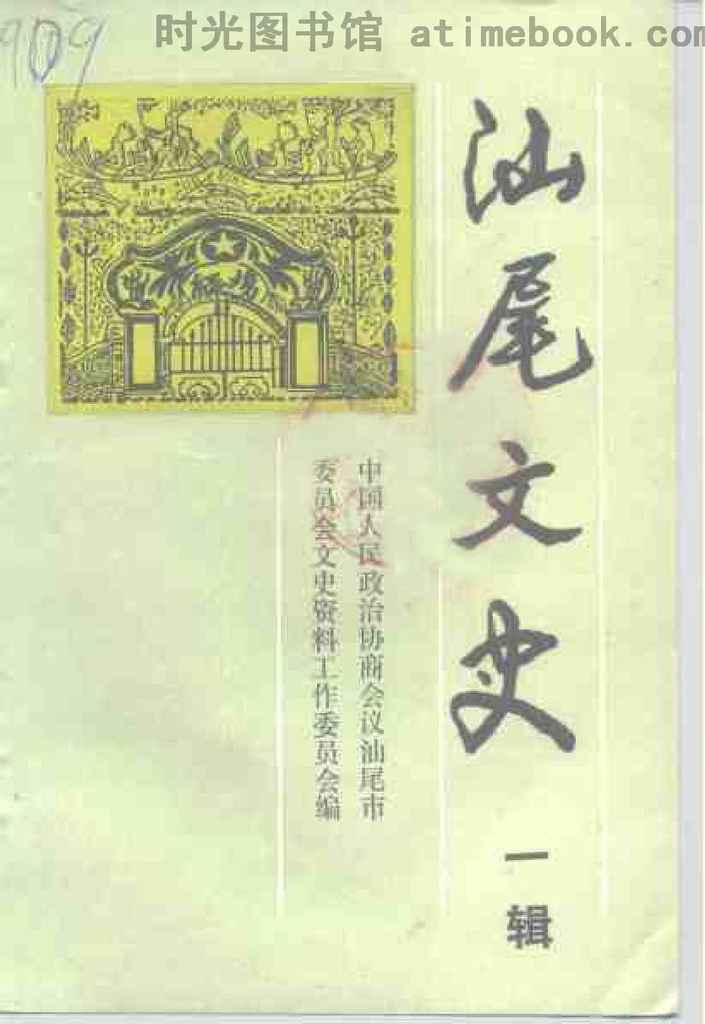 909
时光图书馆 atimebook.com
汕尾文史
一辑
中国人民政治协商会议汕尾市
委员会文史资料工作委员会编